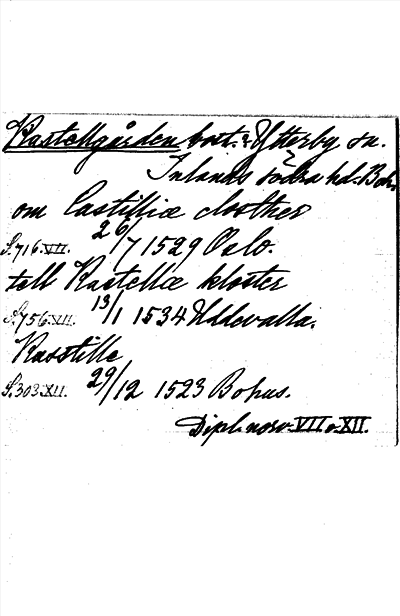 Kastellgården bost. i Ytterby sn.
Inlands södra hd. Boh.
om Castilliæ closther
S. 716. VII. 26/7 1529 Oslo.
till Kastellæ kloster
S. 756. XII. 13/1 1534 Uddevalla.
Kasstille
S. 303. XII. 29/12 1523 Bohus.
Dipl. norv. VII o. XII.